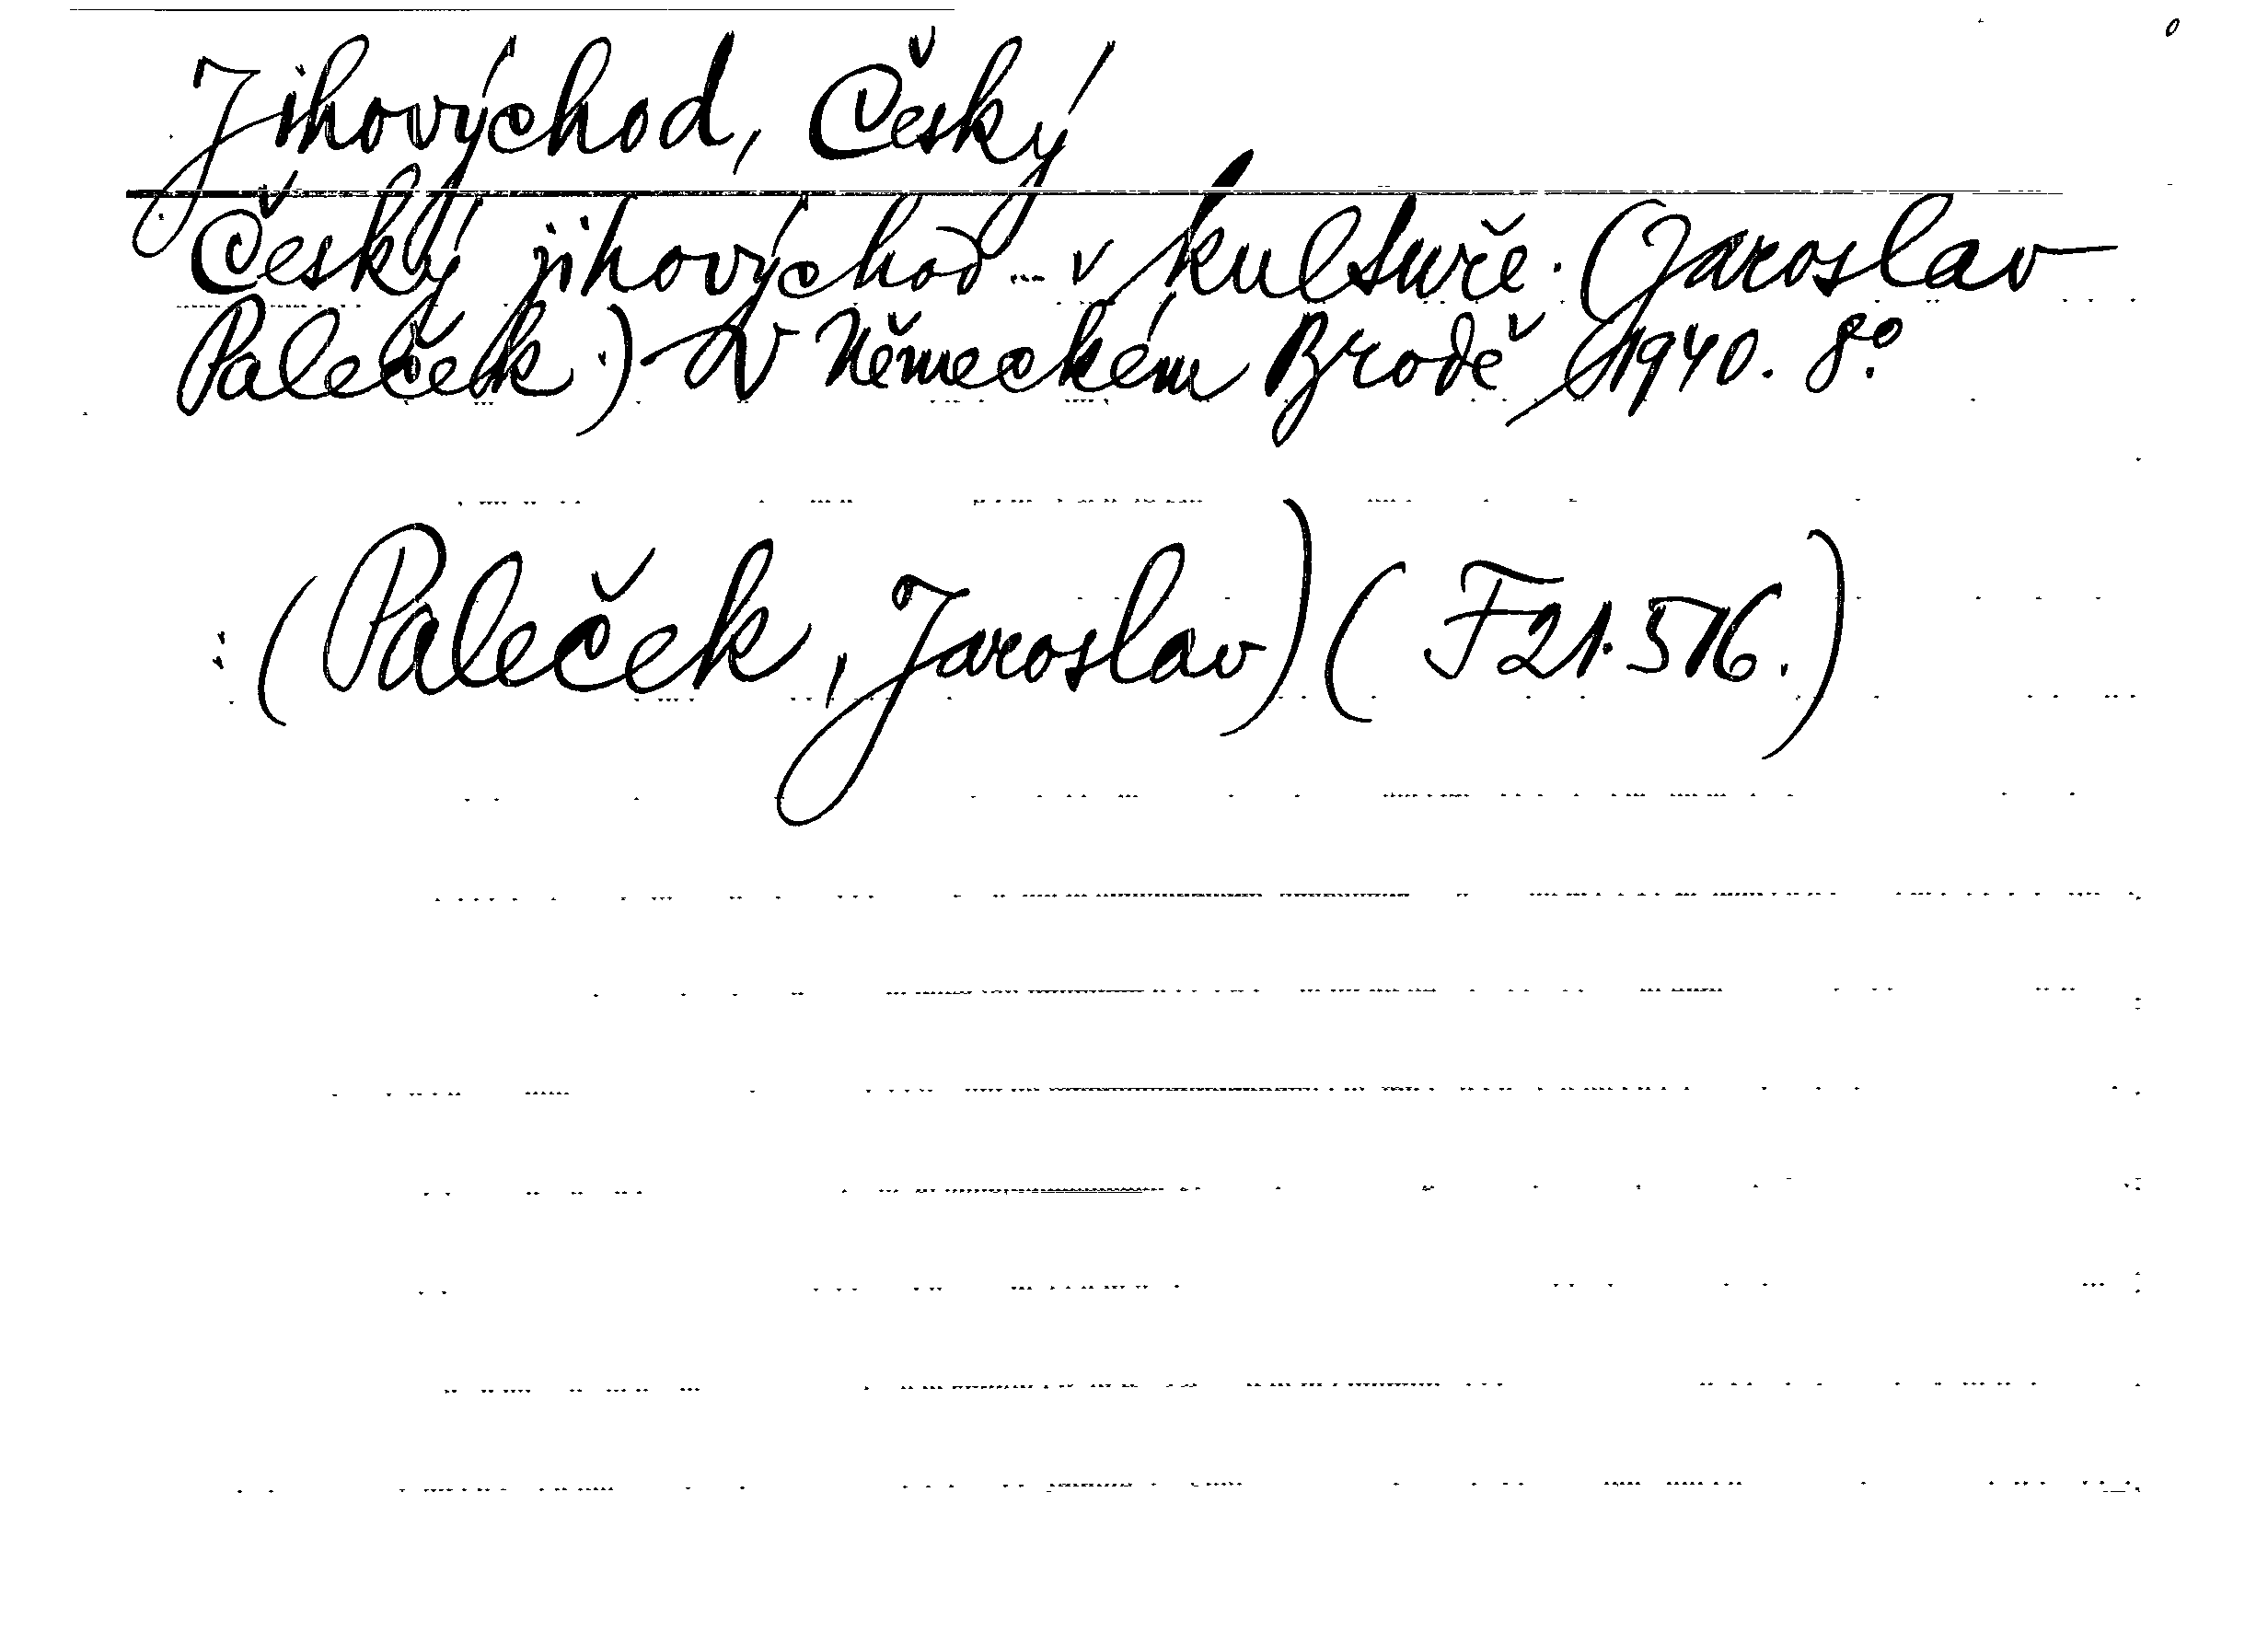 Jihovýchod, Český
Český jihovýchod v kultuře. (Jaroslav
Paleček.) V Německém Brodě, 1940. 8°.
(Paleček, Jaroslav) (F21.516.)